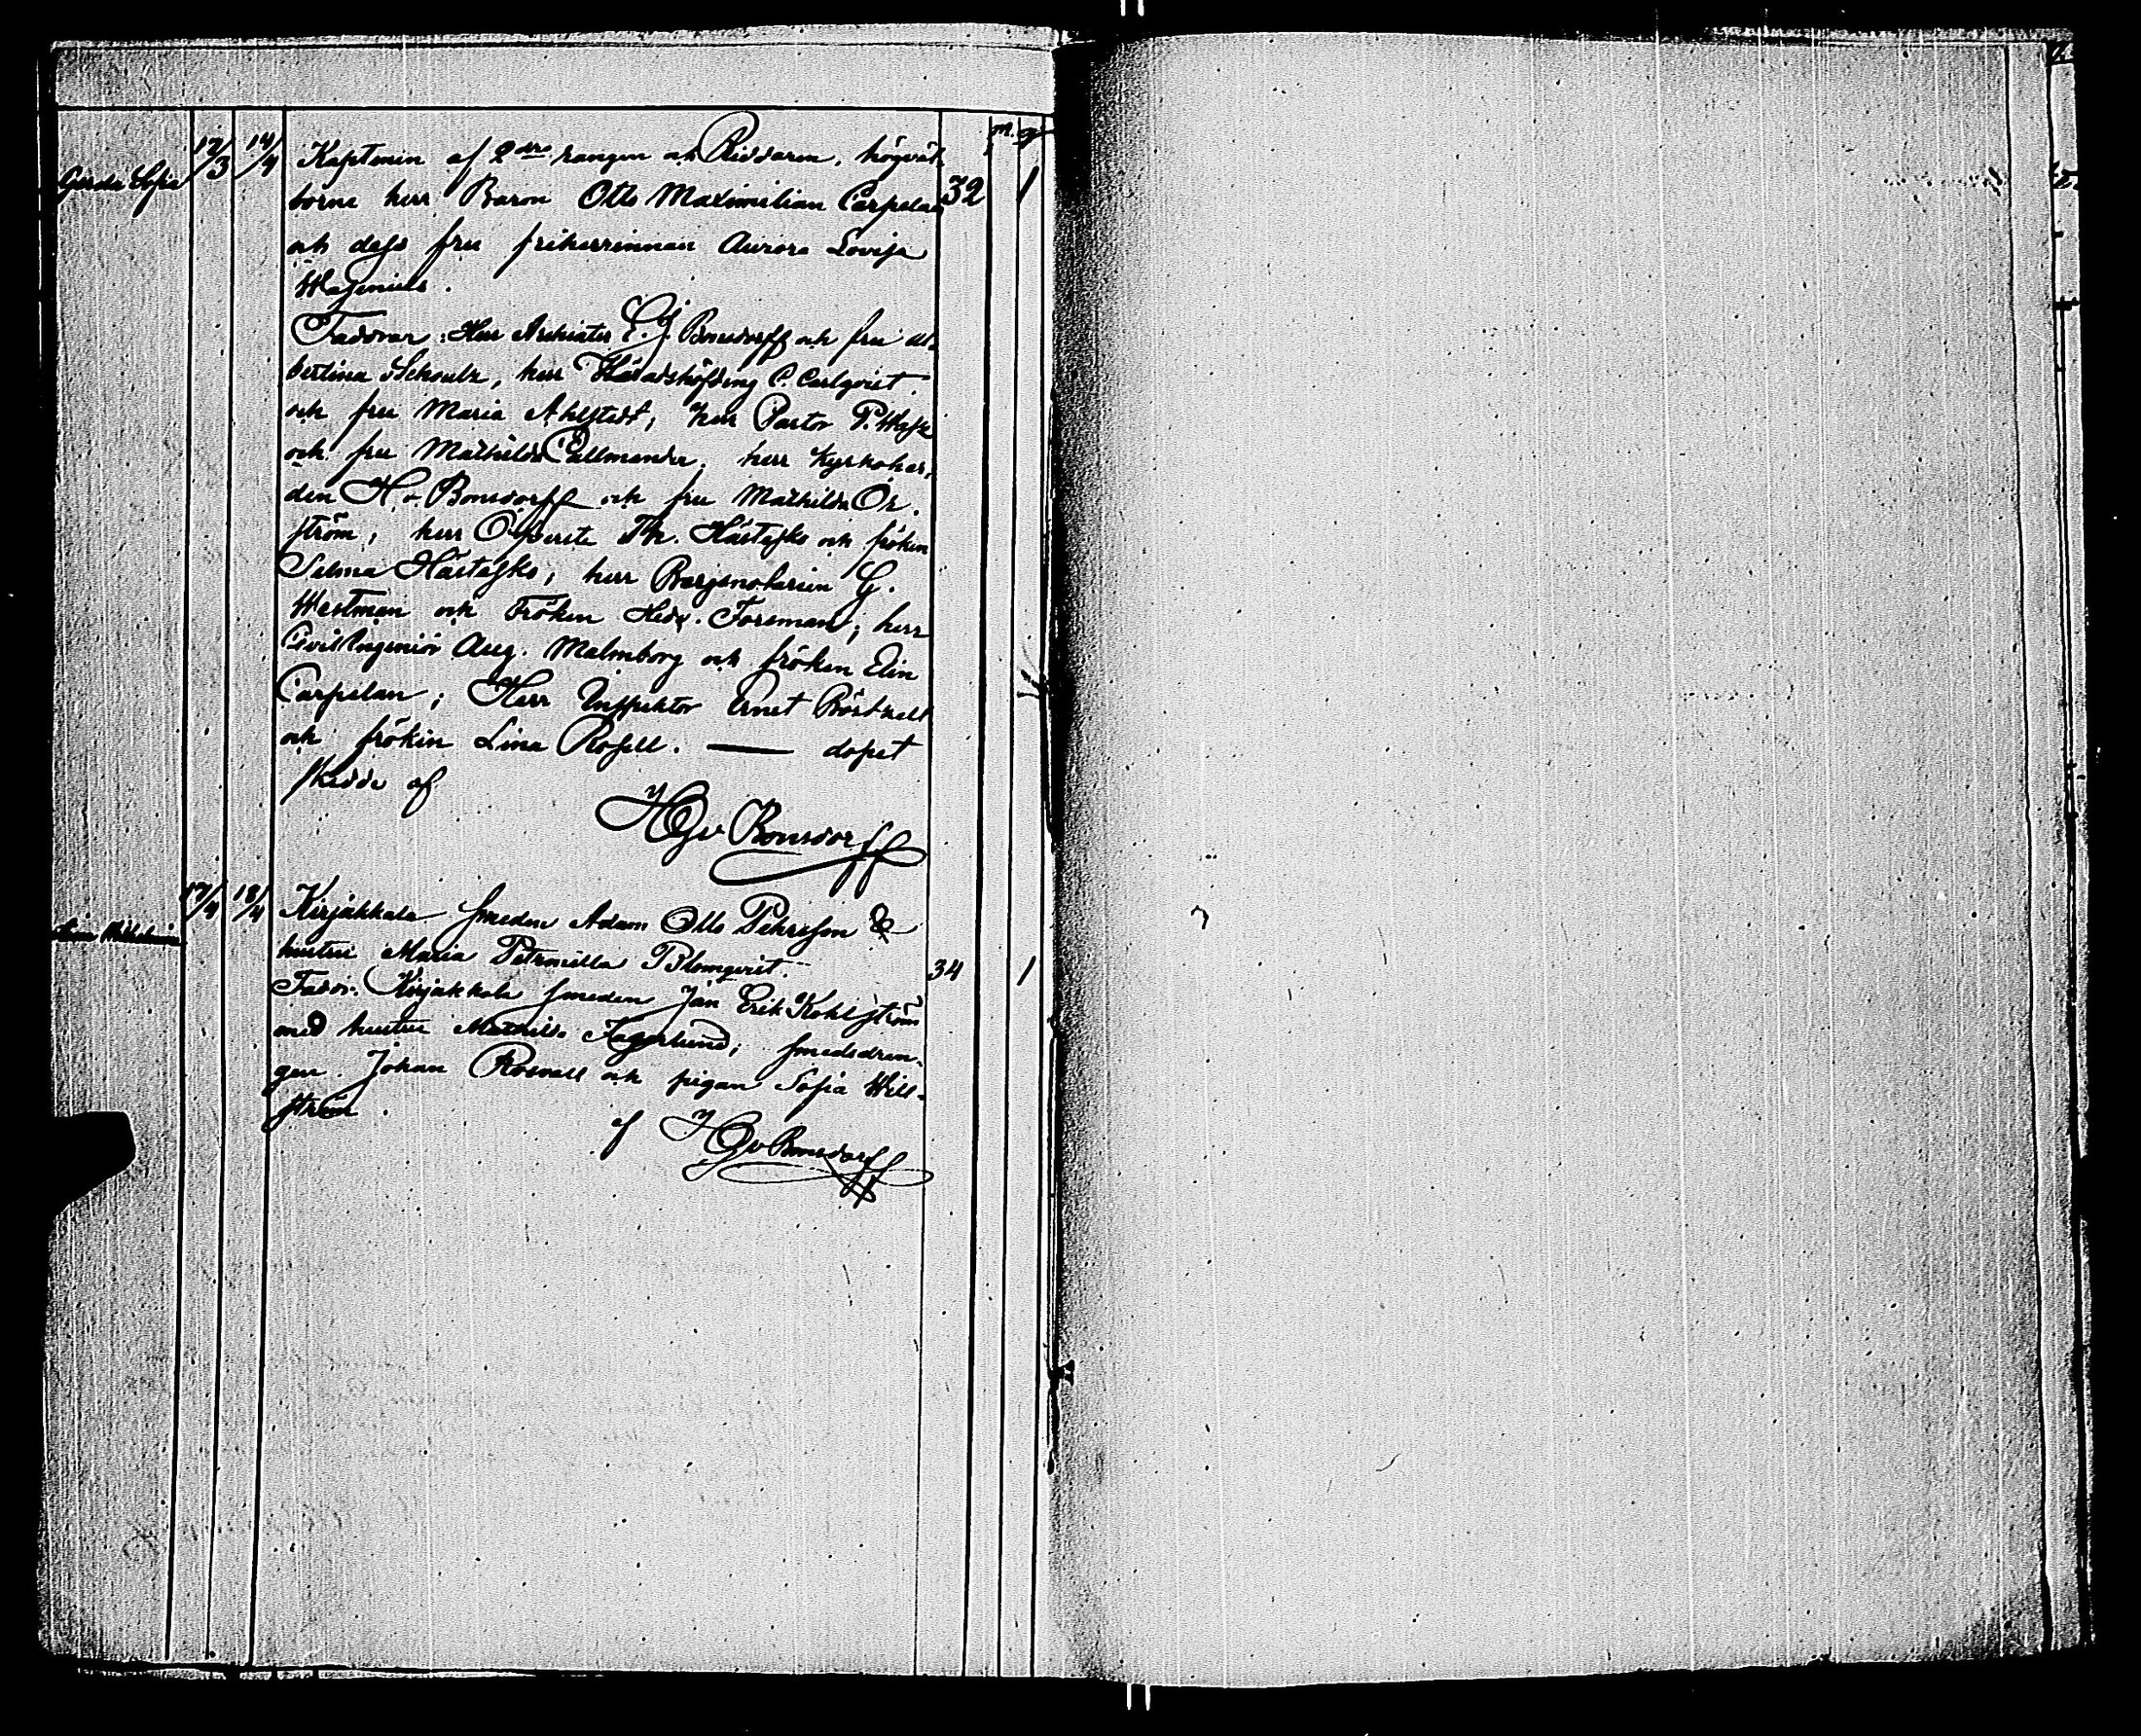 m. q
Gerda Sofia 12/3 14/4 Kaptenen af 2dre rangen och Riddaren, högväl-
borne herr Baron Otto Maximilian Carpelan 32 1
och dess fru friherrinnan Aurora Lovisa
Wasenius.
Faddrar: Herr Archiater E. J. Bonsdorff och fru Al-
bertina Schoultz, herr Häradshöfding C. Carlqvist
och fru Maria Ahlstedt; herr Pastor P.
och fru Mathilda Callmander; herr Kyrkoher-
den H. v. Bonsdorff och fru Mathilda Öh-
ström; herr Öfverste Th. Hästesko och fröken
Selma Hästesko; herr Bergsnotarien G.
Westman och Fröken Hedv. Forsman; herr
Civil Ingeniör Aug. Malmborg och fröken Elin
Carpelan; Herr Inspektor Ernst
och fröken Lina Rosell. — dopet
skedde af
HGv Bonsdorff
Wilhelmina 17/4 18/4 Kirjakkala smeden Adam Otto Pehrsson &
hustru Maria Petronella Blomqvist. 34 1
Faddr. Kirjakkala smeden Jan Erik Kohlström
med hustru Mathilda Fagerlund; smedsdren-
gen Johan Rosvall och pigan Sofia Will-
ström.
af HGv Bonsdorff